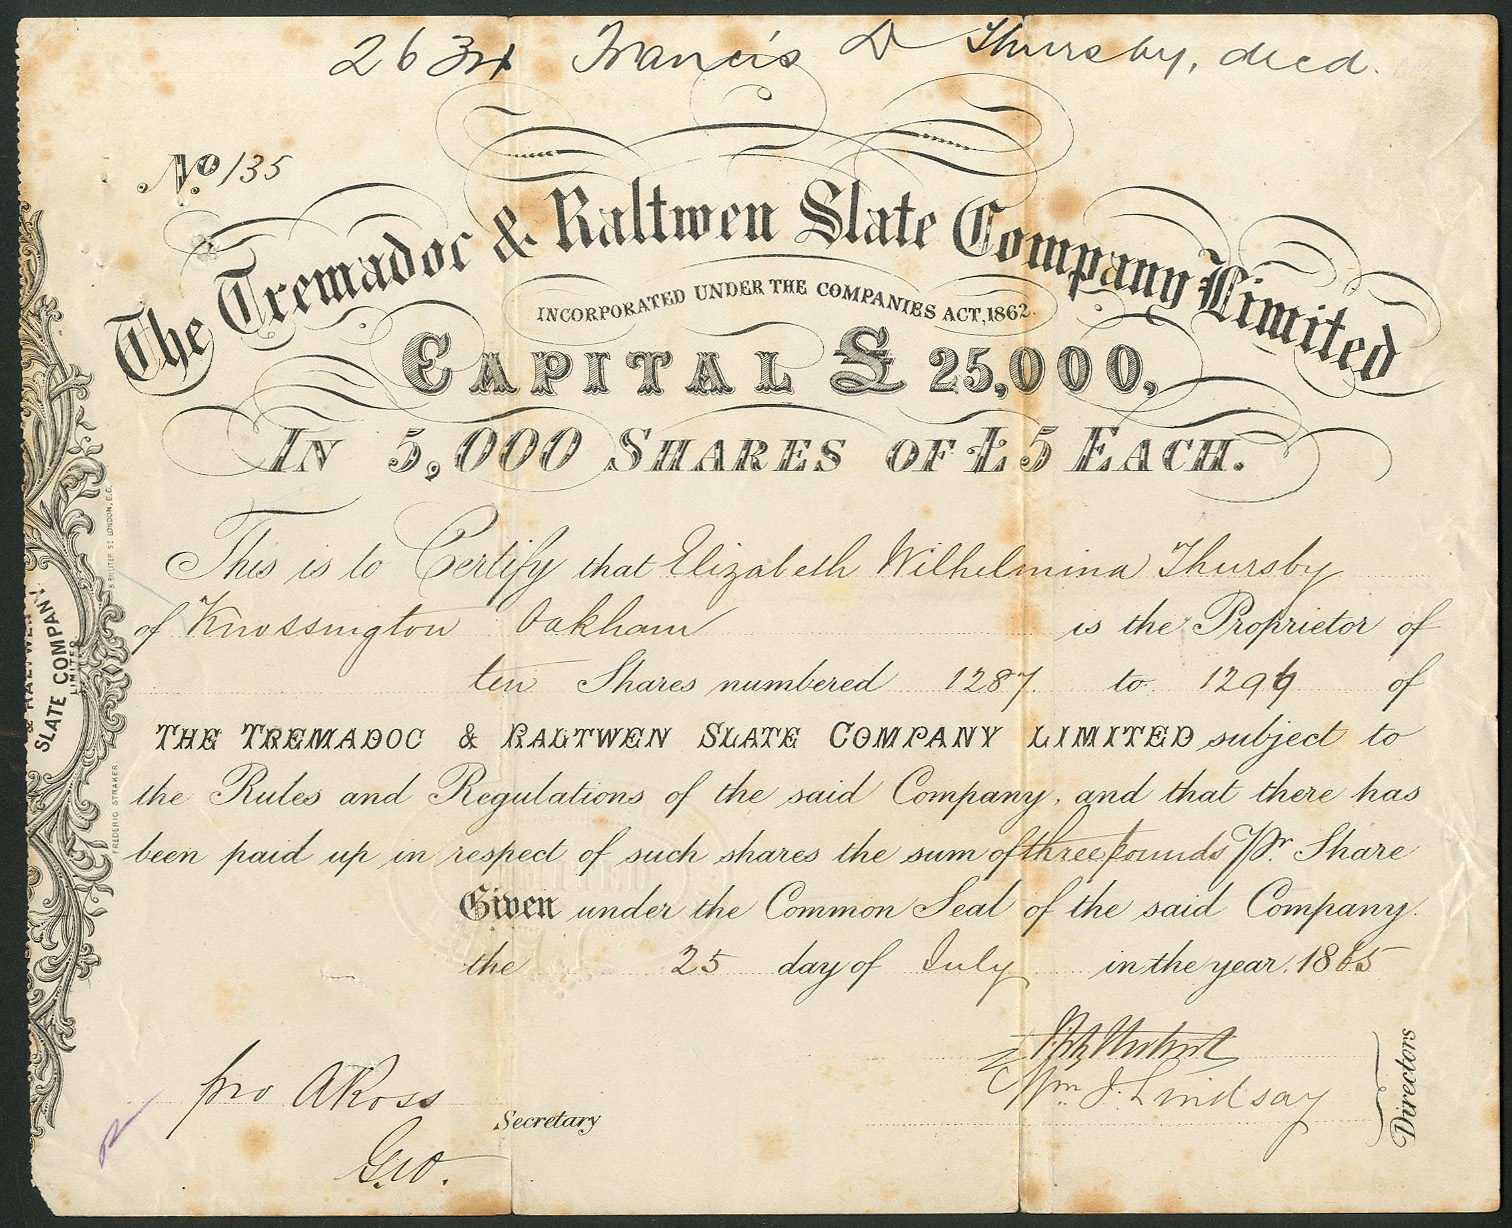 Francis D Thursby, decd.
No 135
The Tremadoc & Raltwen Slate Company Limited
INCORPORATED UNDER THE COMPANIES ACT, 1862.
CAPITAL £ 25,000,
IN 5,000 SHARES OF £5 EACH.
This is to Certify that Elizabeth Wilhelmina Thursby
of Knossington Oakham is the Proprietor of
ten Shares numbered 1287 to 1296 of
THE TREMADOC & RALTWEN SLATE COMPANY LIMITED subject to
the Rules and Regulations of the said Company, and that there has
been paid up in respect of such shares the sum of three pounds Pr. Share
Given under the Common Seal of the said Company.
the 25 day of July in the year 1865
Wm J. Lindsay
Directors
pro A Ross
Secretary
G.W.
& RALTWEN
SLATE COMPANY
LIMITED
FREDERIC STRAKER LONDON, E.C.